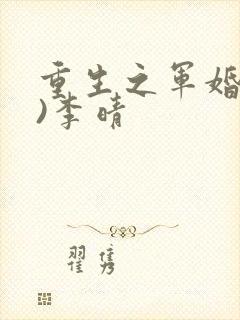 重生之军婚
)李晴
翟隽